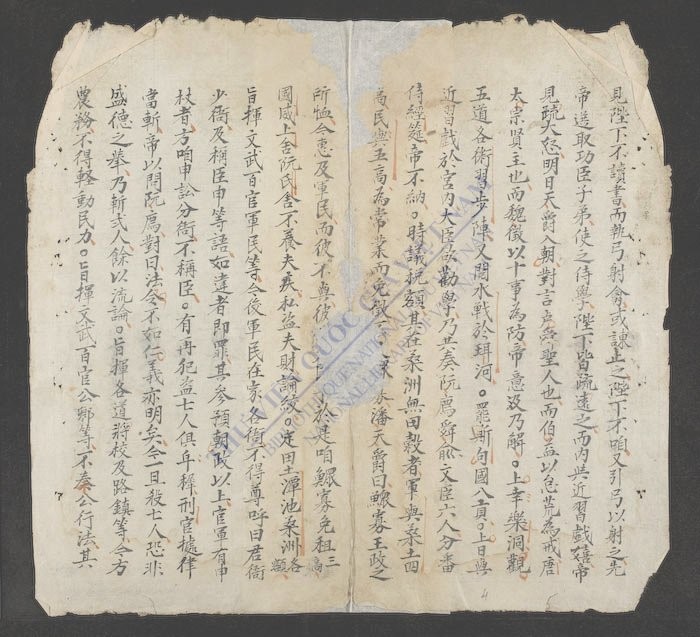 見陛下不讀書而執弓射禽或諫止之陛下不咱又引弓以射之先
帝選取功臣子弟使之侍學陛下皆疏遠之而内共近習戲嬉帝
見疏大怒明日天爵入朝對言堯舜聖人也而伯益以怠荒為戒唐
太宗賢主也而魏徵以十事為防帝意乃解。上幸衆洞觀
五道各衛習步陣又閱水戰於珥河。罷向國。上日與
近習戲於宮内大臣等勸學乃共奏阮廌舜俞文臣六人分番
侍經筵帝不納。時議稅額其在桑洲無田穀者軍與桑土四
高民與五高為常業而免潘天爵曰鰥寡王政之
所恤今惠及軍民而彼不與於是咱鰥寡免租三高
國威上舍阮氏舍不養夫疾私益夫財論絞。定田土潭池桑洲各額
旨揮文武百官軍民等今後軍民在家各衙不得尊呼曰君衙
少衙及稱臣申等語如違者即罪其參預朝政以上官軍有申
杖者方咱申訟分衙不稱臣。有再犯盜七人俱年穉刑官據律
當斬帝以問阮廌對曰法令不如仁義亦明矣今一旦殺七人恐非
盛德之舉乃斬弍人餘以流論。旨揮各道將校及路鎮等今方
農務不得輕動民力。旨揮文武百官公卿等不奉公行法其
THƯ VIỆN QUỐC GIA VIỆT NAM